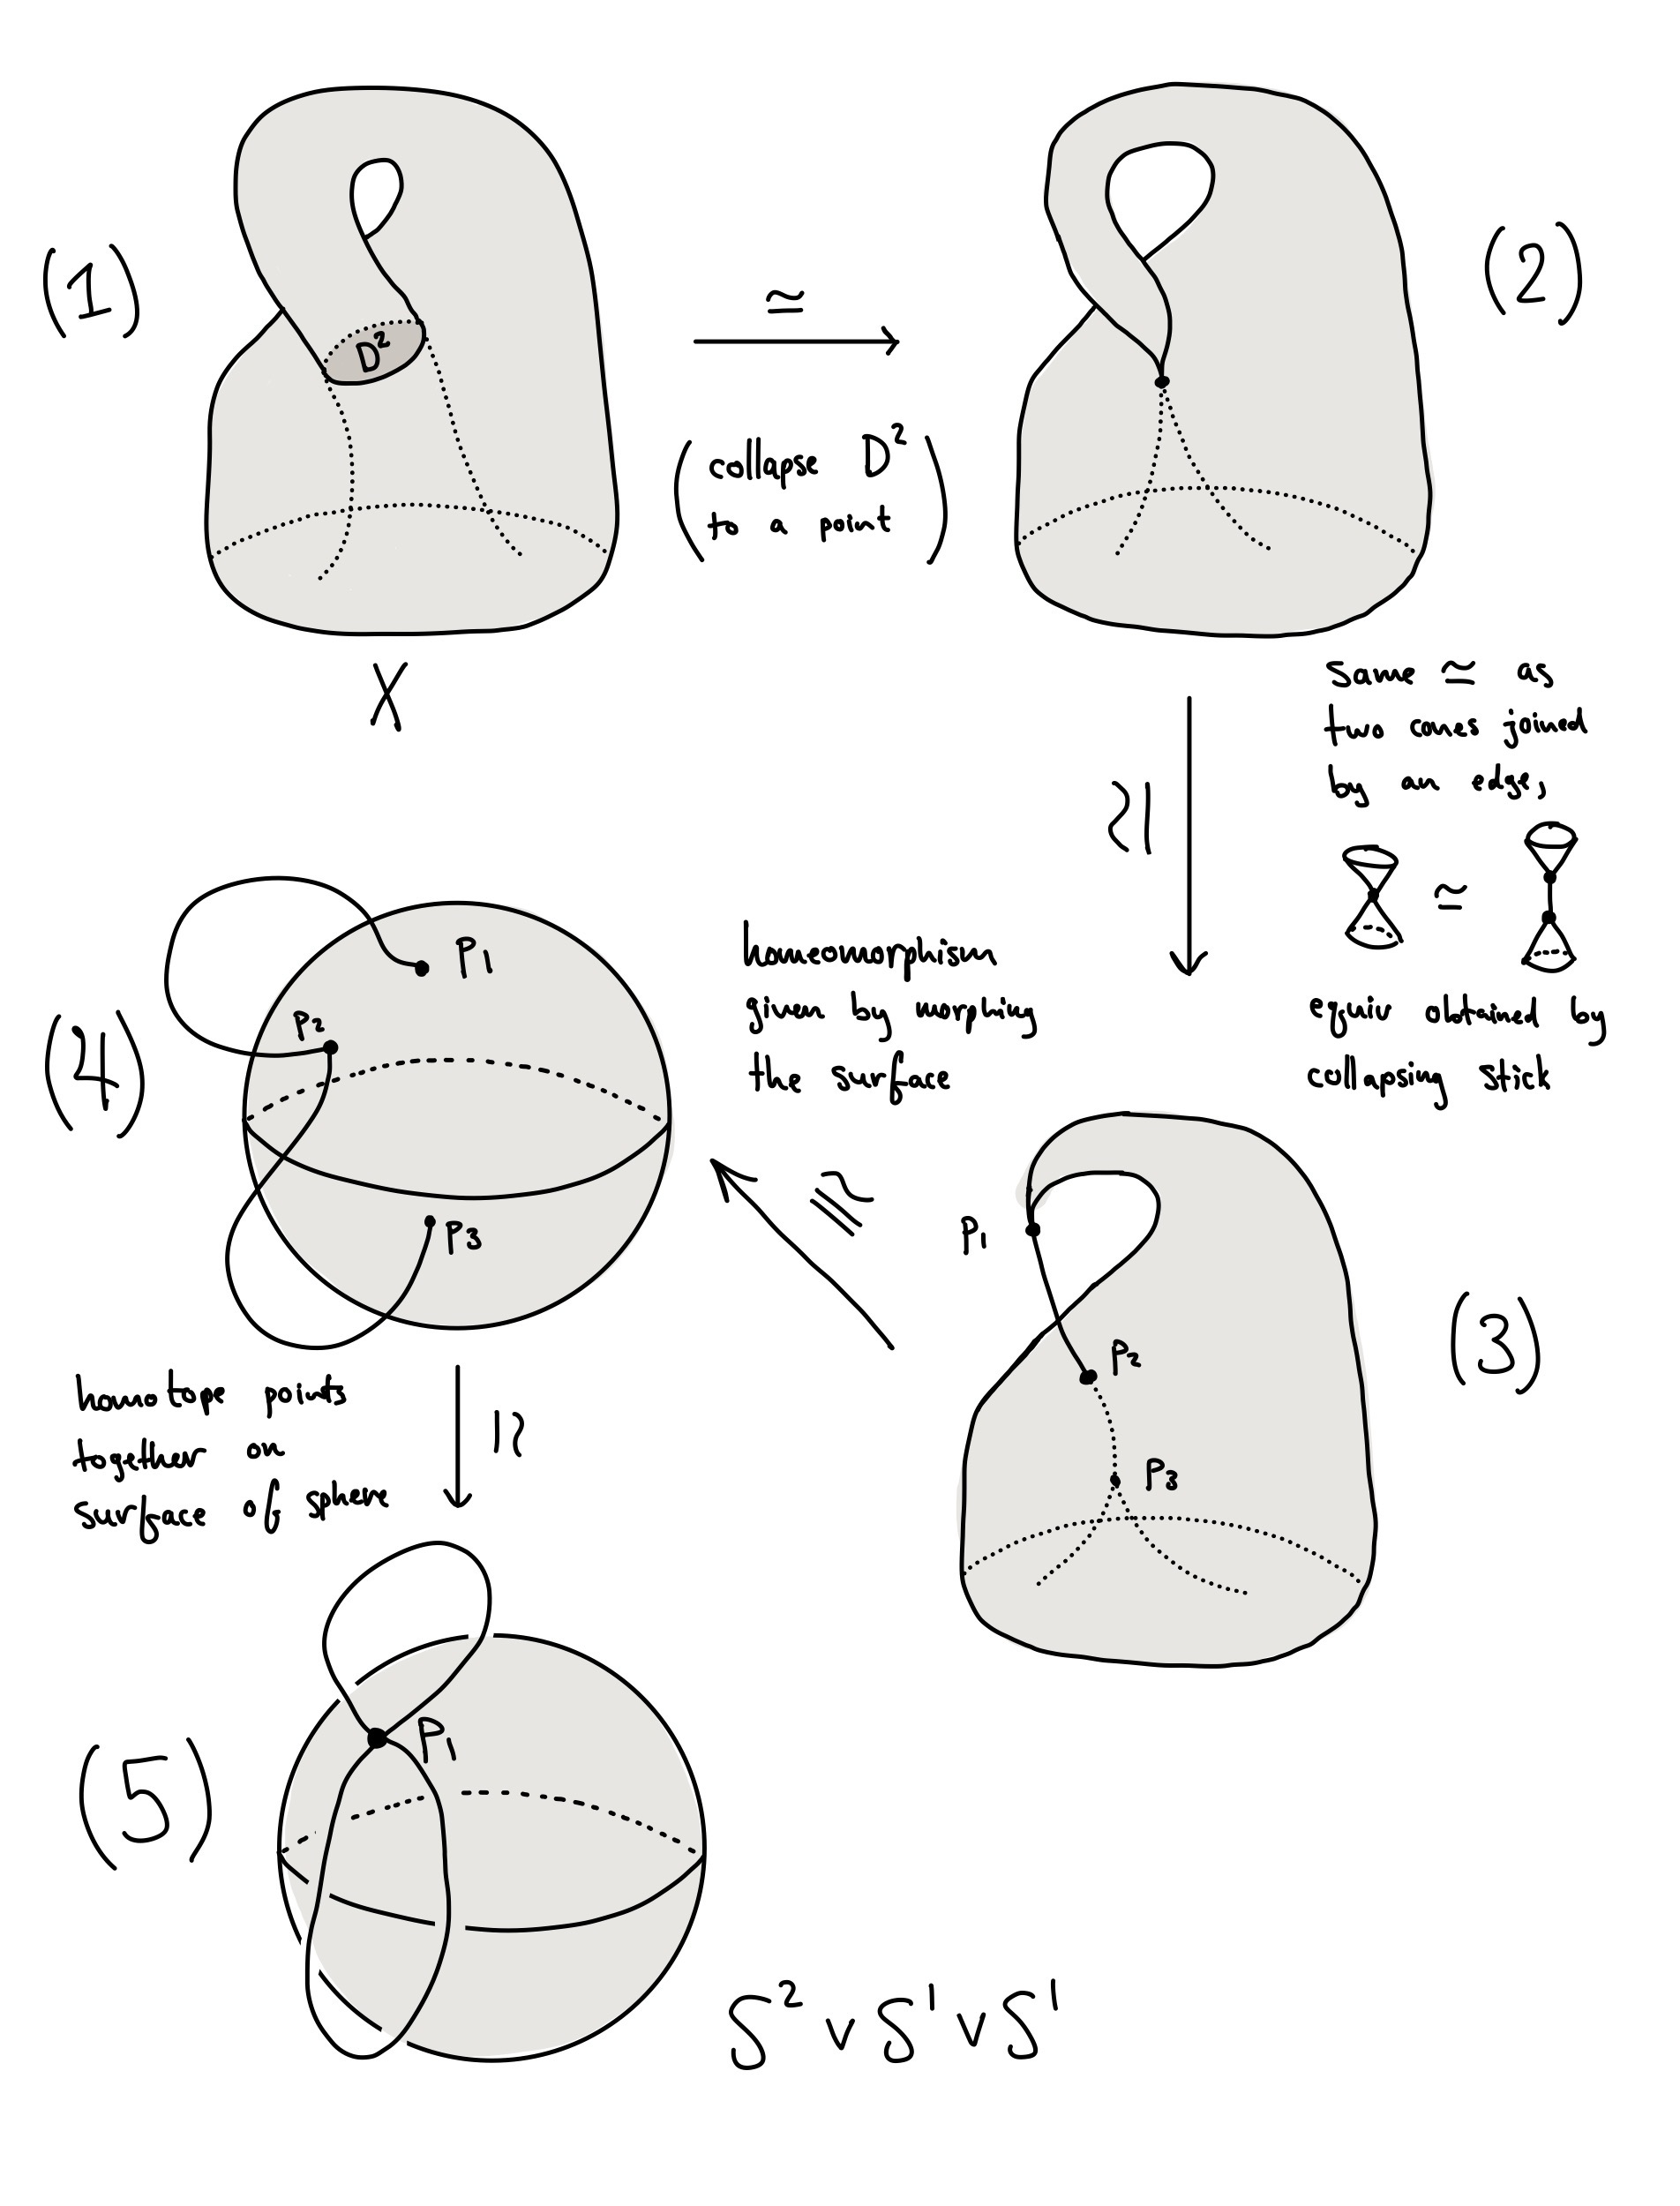 (1)
D²
X
≃
(collapse D²
to a point)
(2)
≃
same ≃ as
two cones joined
by an edge,
≃
equiv obtained by
collapsing stick
(3)
P₁
P₂
P₃
≅
homeomorphism
given by morphing
the surface
(4)
P₁
P₂
P₃
homotope points
together on
surface of sphere
≃
(5)
P₁
S² ∨ S¹ ∨ S¹